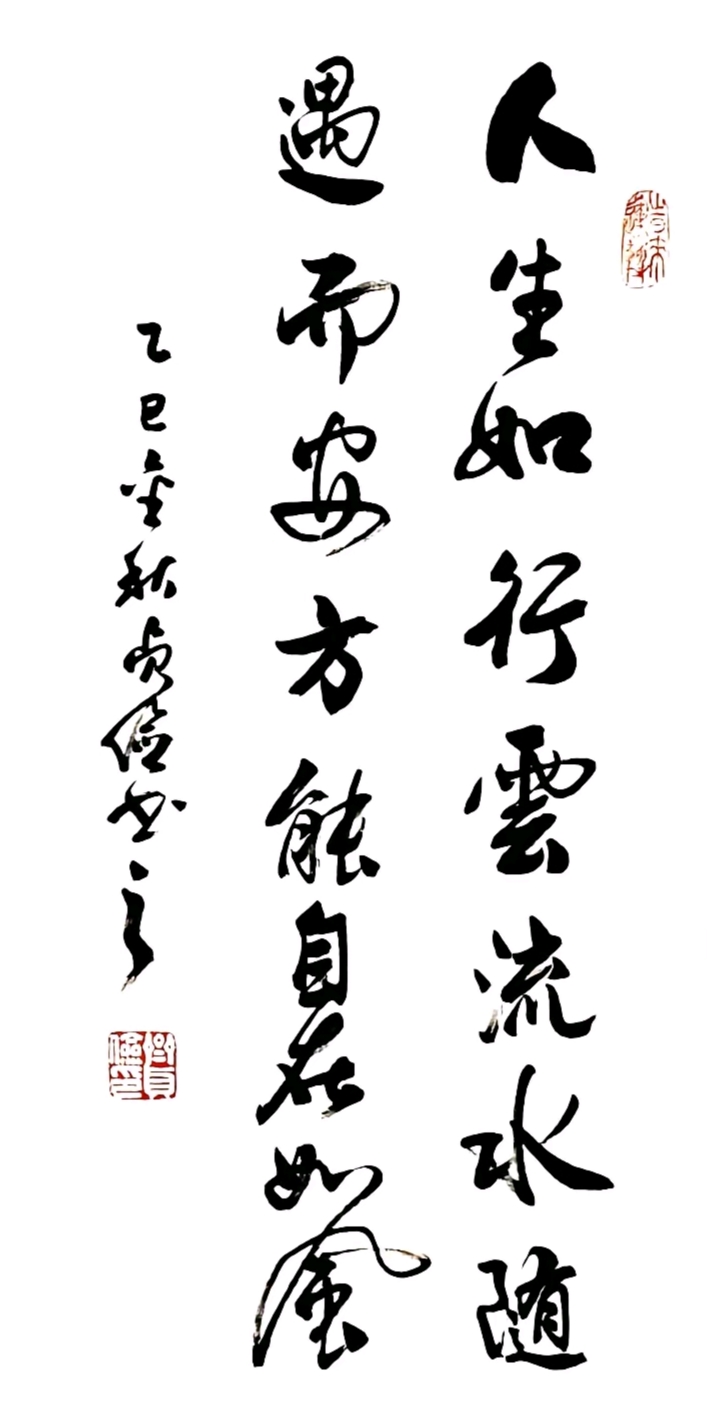 人生如行雲流水随
遇而安方能自在如風
乙巳金秋貞儉书之